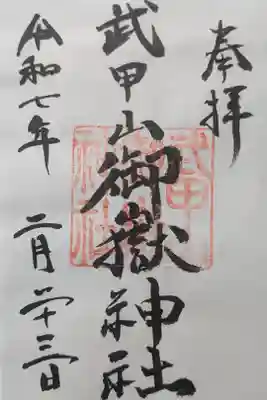 奉拝
武甲山御嶽神社
令和七年 二月廿三日